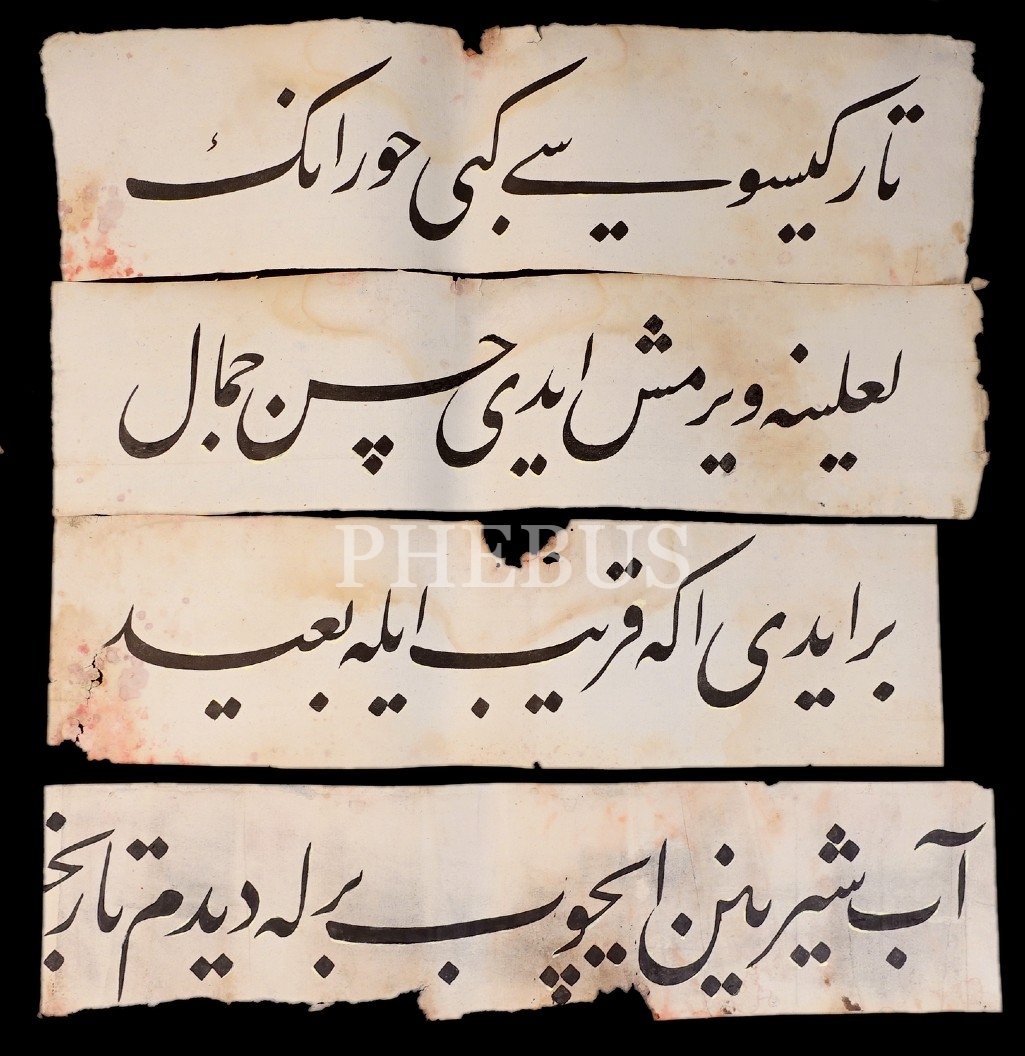 تار كیسویسے كبی حورانك
لعلینه ویرمش ایدی حسن جمال
بر ایدی اكه قریب ایله بعید
PHEBUS
آب شیرینن ایچوب برله دیدم تاریخ